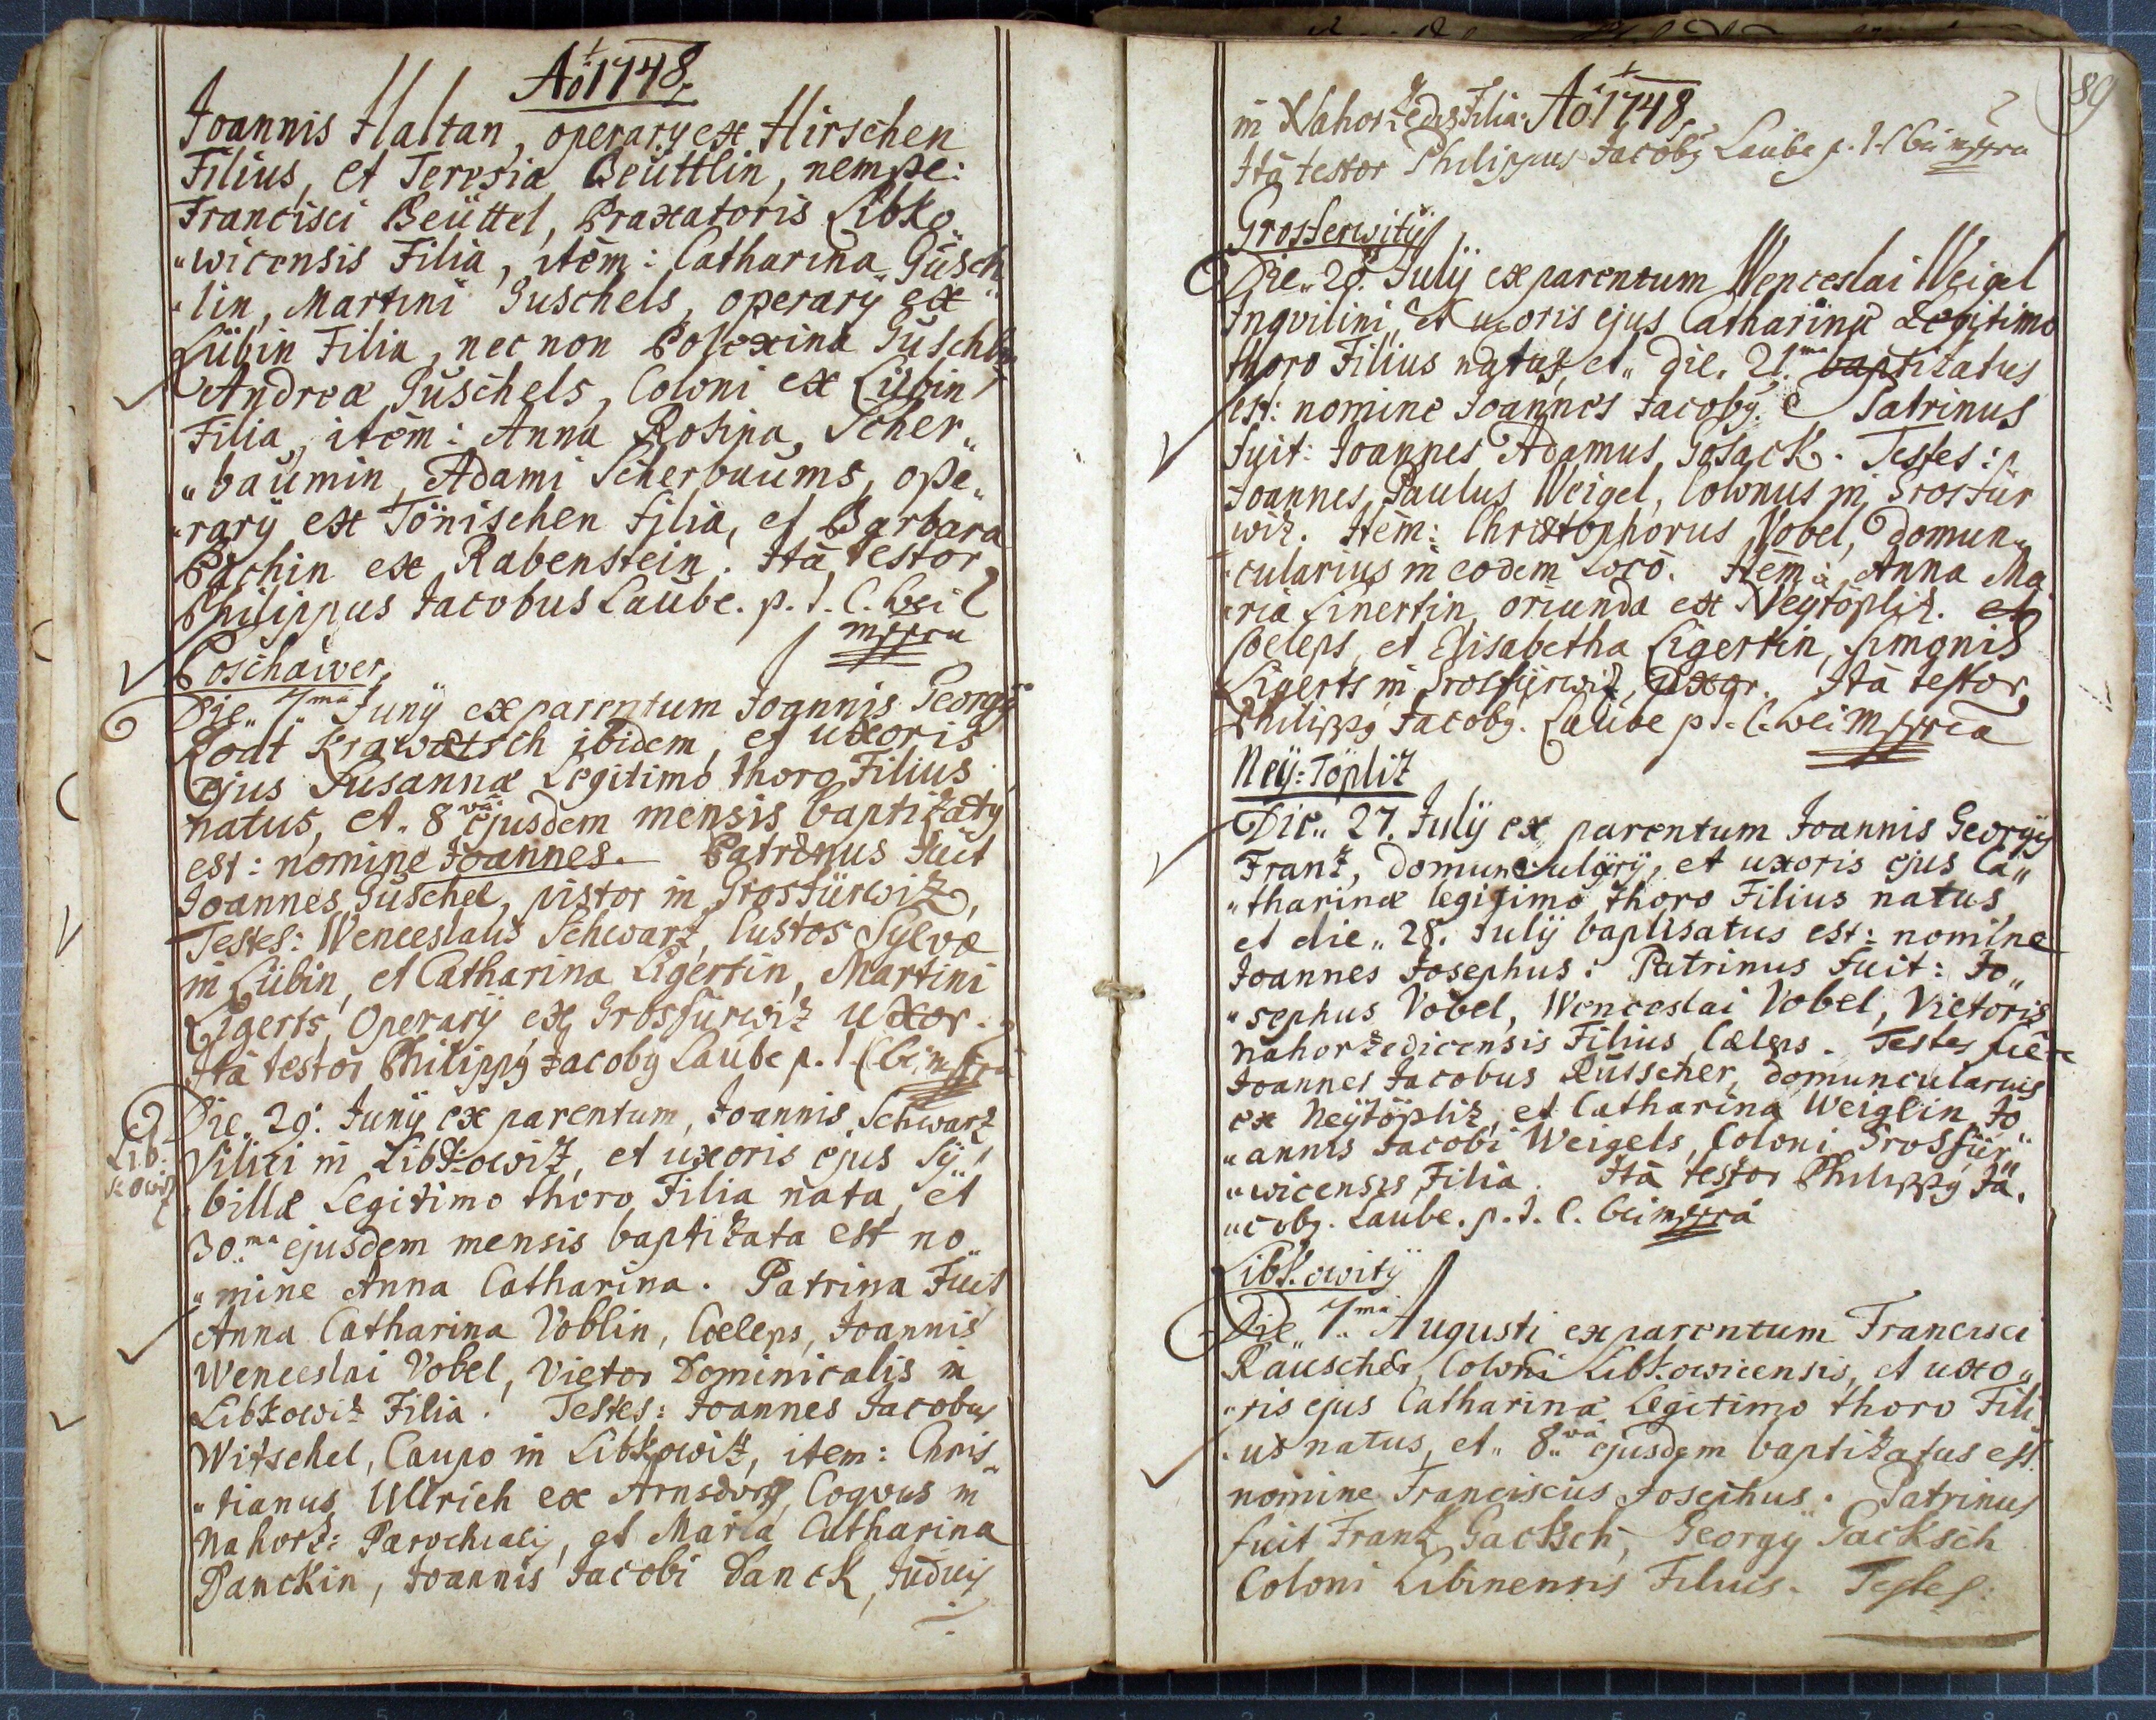 Aõ 1748.
Joannis Haltan, operary ex Hirschen
Filius, et Teresia Beüttlin, nempe:
Francisci Beüttel, Braxatoris Libko„
„wicensis Filia, item: Catharina Gusch„
„lin, Martini Guschels, operarÿ ex
Lübin Filia, nec non Polexina Guschlin
Andreæ Guschels, Coloni ex Lübin
Filia, item: Anna Rosina, Scher„
„baumin, Adami Scherbaums, ope„
„rarÿ ex Tönischen filia, et Barbara
Pachin ex Rabenstein. Ità testor
Philippus Jacobus Laube. p. t. C. bei
mppra
Poschawer
Die„ 7ma Junÿ ex parentum Joannis Georgÿ
Rodt Krawatsch ibidem, et uxoris
ejus Susannæ Legitimo thoro Filius
natus, et„ 8va ejusdem mensis baptizatg
est: nomine Joannes. Patrinus fuit
Joannes Guschel, pistor in Grostürwiz,
Testes: Wenceslaus Schwarz, Custos Sylvæ
in Lübin, et Catharina Ligertin, Martini
Ligerts, Operarÿ ex Grostürwiz uxor.
Ità testor Philippg Jacobg Laube p. t. C bei mppra
Die„ 29. Junÿ ex parentum, Joannis Schwarz
Lib:
kowiz
Vilici in Libkowiz, et uxoris ejus Sÿ„
„billæ Legitimo thoro Filia nata, et
30.ma ejusdem mensis baptizata est no„
„mine Anna Catharina. Patrina fuit
Anna Catharina Voblin, Coeleps, Joannis
Wenceslai Vobel, Vietor Dominicalis in
Libkowiz Filia. Testes: Joannes Jacobus
Witschel, Caupo in Libkowiz, item: Chris„
„tianus Ullrich ex Arnsdorf, Coqvus in
Nahorz: Parochialis, et Maria Catharina
Danckin, Joannis Jacobi Danck, Judicis
89
in Nahorzedis Filia. Aõ 1748.
Ità testor Philippus Jacobg Laube p. t. C bei mppra
Grosterwitz
Die„ 20. Julÿ ex parentum Wenceslai Weigel
Inqvilini, et uxoris ejus Catharinæ Legitimo
thoro Filius natus, et„ die. 21.ma baptizatus
est: nomine Joannes Jacobg. Patrinus
fuit: Joannes Adamus, Gosack. Testes:
Joannes Paulus Weigel, Colonus in Grostür
wiz. Item: Christophorus Vobel, domun„
„cularius in eodem Loco. Item: Anna Ma
„ria Linertin, oriunda ex Neytöpliz. et
Coeleps, et Elisabetha Ligertin, Simonis
Ligerts in Grostürwiz, uxor. Ità testor
Philippg Jacobg. Laube p t. C. bei mppria
Neÿ: Töpliz
Die„ 27. Julÿ ex parentum Joannis Georgÿ
Franz, Domuncularÿ, et uxoris ejus Ca„
„tharinæ legitimo thoro Filius natus
et die„ 28. Julÿ baptisatus est: nomine
Joannes Josephus: Patrinus fuit: Jo„
„sephus Vobel, Wenceslai Vobel, Vietoris
Nahorzedicensis Filius Cæleps. Testes fuere
Joannes Jacobus Rüsscher, domuncularius
ex Neÿtöpliz, et Catharina Weiglin Jo
„annis Jacobi Weigels, Coloni Grostür„
„wicensis Filia. Ità testor Philippg Ja„
„cobg. Laube. p. t. C. bei mppra
Libkowitz
Die„ 7.ma Augusti ex parentum Francisci
Rauscher, Coloni Libkowicensis, et uxo„
„ris ejus Catharinæ Legitimo thoro Fili
„us natus, et„ 8.va ejusdem baptizatus est.
nomine Franciscus Josephus. Patrinus
fuit Franz Gacksch, Georgÿ Gacksch
Coloni Libinensis Filius. Testes: